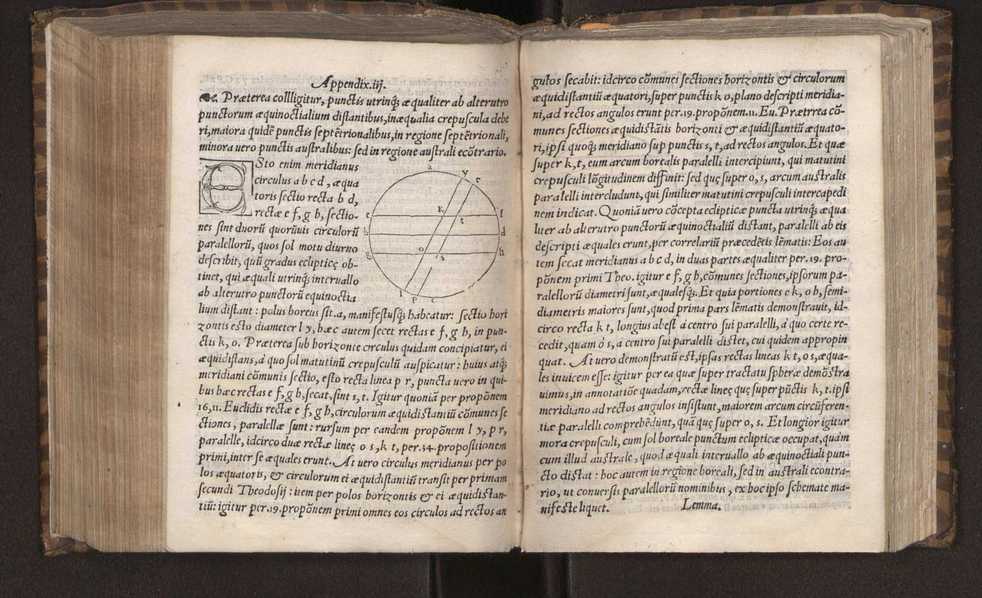 Appendix.iij.
☙ Præterea collligitur, punctis utrinq; æqualiter ab alterutro
punctorum æquinoctialium distantibus, inæqualia crepuscula debe
ri, maiora quidē punctis septētrionalibus, in regione septētrionali,
minora uero punctis australibus: sed in regione australi ecōtrario.
ESto enim meridianus
circulus a b c d, æqua
toris sectio recta b d,
rectæ e f, g h, sectio-
nes sint duorū quorūuis circulorū
parallelorū, quos sol motu diurno
describit, quū gradus eclipticę ob-
tinet, qui æquali utrinq; interuallo
ab alterutro punctorū equinoctia
lium distant: polus boreus sit .a, manifestusq; habeatur: sectio hori
zontis esto diameter l y, hæc autem secet rectas e f, g h, in pun-
ctis k, o. Præterea sub horizonte circulus quidam concipiatur, ei
æquidistans, à quo sol matutinū crepusculū auspicatur: huius atq;
meridiani cōmunis sectio, esto recta linea p r, puncta uero in qui-
bus hæc rectas e f, g h, secat, sint s, t. Igitur quoniā per propōnem
16, 11. Euclidis rectæ e f, g h, circulorum æquidistantiū cōmunes se
ctiones, parallelæ sunt: rursum per eandem propōnem l y, p r,
parallelæ, idcirco duæ rectæ lineę o s, k t, per .34. propositionem
primi, inter se æquales erunt. At uero circulus meridianus per po
los æquatoris, & circulorum ei æquidistantiū transit per primam
secundi Theodosij: item per polos horizontis & ei æquidistan-
tiū: igitur per .19. propōnem primi omnes eos circulos ad rectos an
gulos secabit: idcirco cōmunes sectiones horizontis & circulorum
æquidistantiū æquatori, super punctis k o, plano descripti meridia-
ni, ad rectos angulos erunt per .19. propōnem .11. Eu. Prætrrea cō-
munes sectiones æquidistātis horizonti & æquidistantiū æquato-
ri, ipsi quoq; meridiano sup punctis s, t, ad rectos angulos. Et quæ
super k, t, eum arcum borealis paralleli intercipiunt, qui matutini
crepusculi lōgitudinem diffinit: sed quę super o, s, arcum australis
paralleli intercludunt, qui similiter matutini crepusculi intercapedi
nem indicat. Quoniā uero cōcepta eclipticæ puncta utrinq; æqua
liter ab alterutro punctorū æquinoctialiū distant, paralleli ab eis
descripti æquales erunt, per correlariū præcedētis lēmatis: Eos au
tem secat meridianus a b c d, in duas partes æqualiter per .19. pro-
pōnem primi Theo. igitur e f, g h, cōmunes sectiones, ipsorum pa-
rallelorū diametri sunt, æqualesq;. Et quia portiones e k, o h, semi-
diametris maiores sunt, quod prima pars lēmatis demonstrauit, id-
circo recta k t, longius abest à centro sui paralleli, à quo certe re-
cedit, quam o s, a centro sui paralleli distet, cui quidem appropin
quat. At uero demonstratū est, ipsas rectas lineas k t, o s, æqua-
les inuicem esse: igitur per ea quæ super tractatu spheræ demōstra
uimus, in annotatiōe quadam, rectæ lineę quę super pūctis k, t, ipsi
meridiano ad rectos angulos insistunt, maiorem arcum circūferen-
tiæ paralleli comprehēdunt, quā quę super o, s. Et longior igitur
mora crepusculi, cum sol boreale punctum eclipticæ occupat, quàm
cum illud australe, quod æquali interuallo ab æquinoctiali pun-
cto distat: hoc autem in regione boreali, sed in australi econtra-
rio, ut conuersis parallelorū nominibus, ex hoc ipso schemate ma-
nifeste liquet.
Lemma.